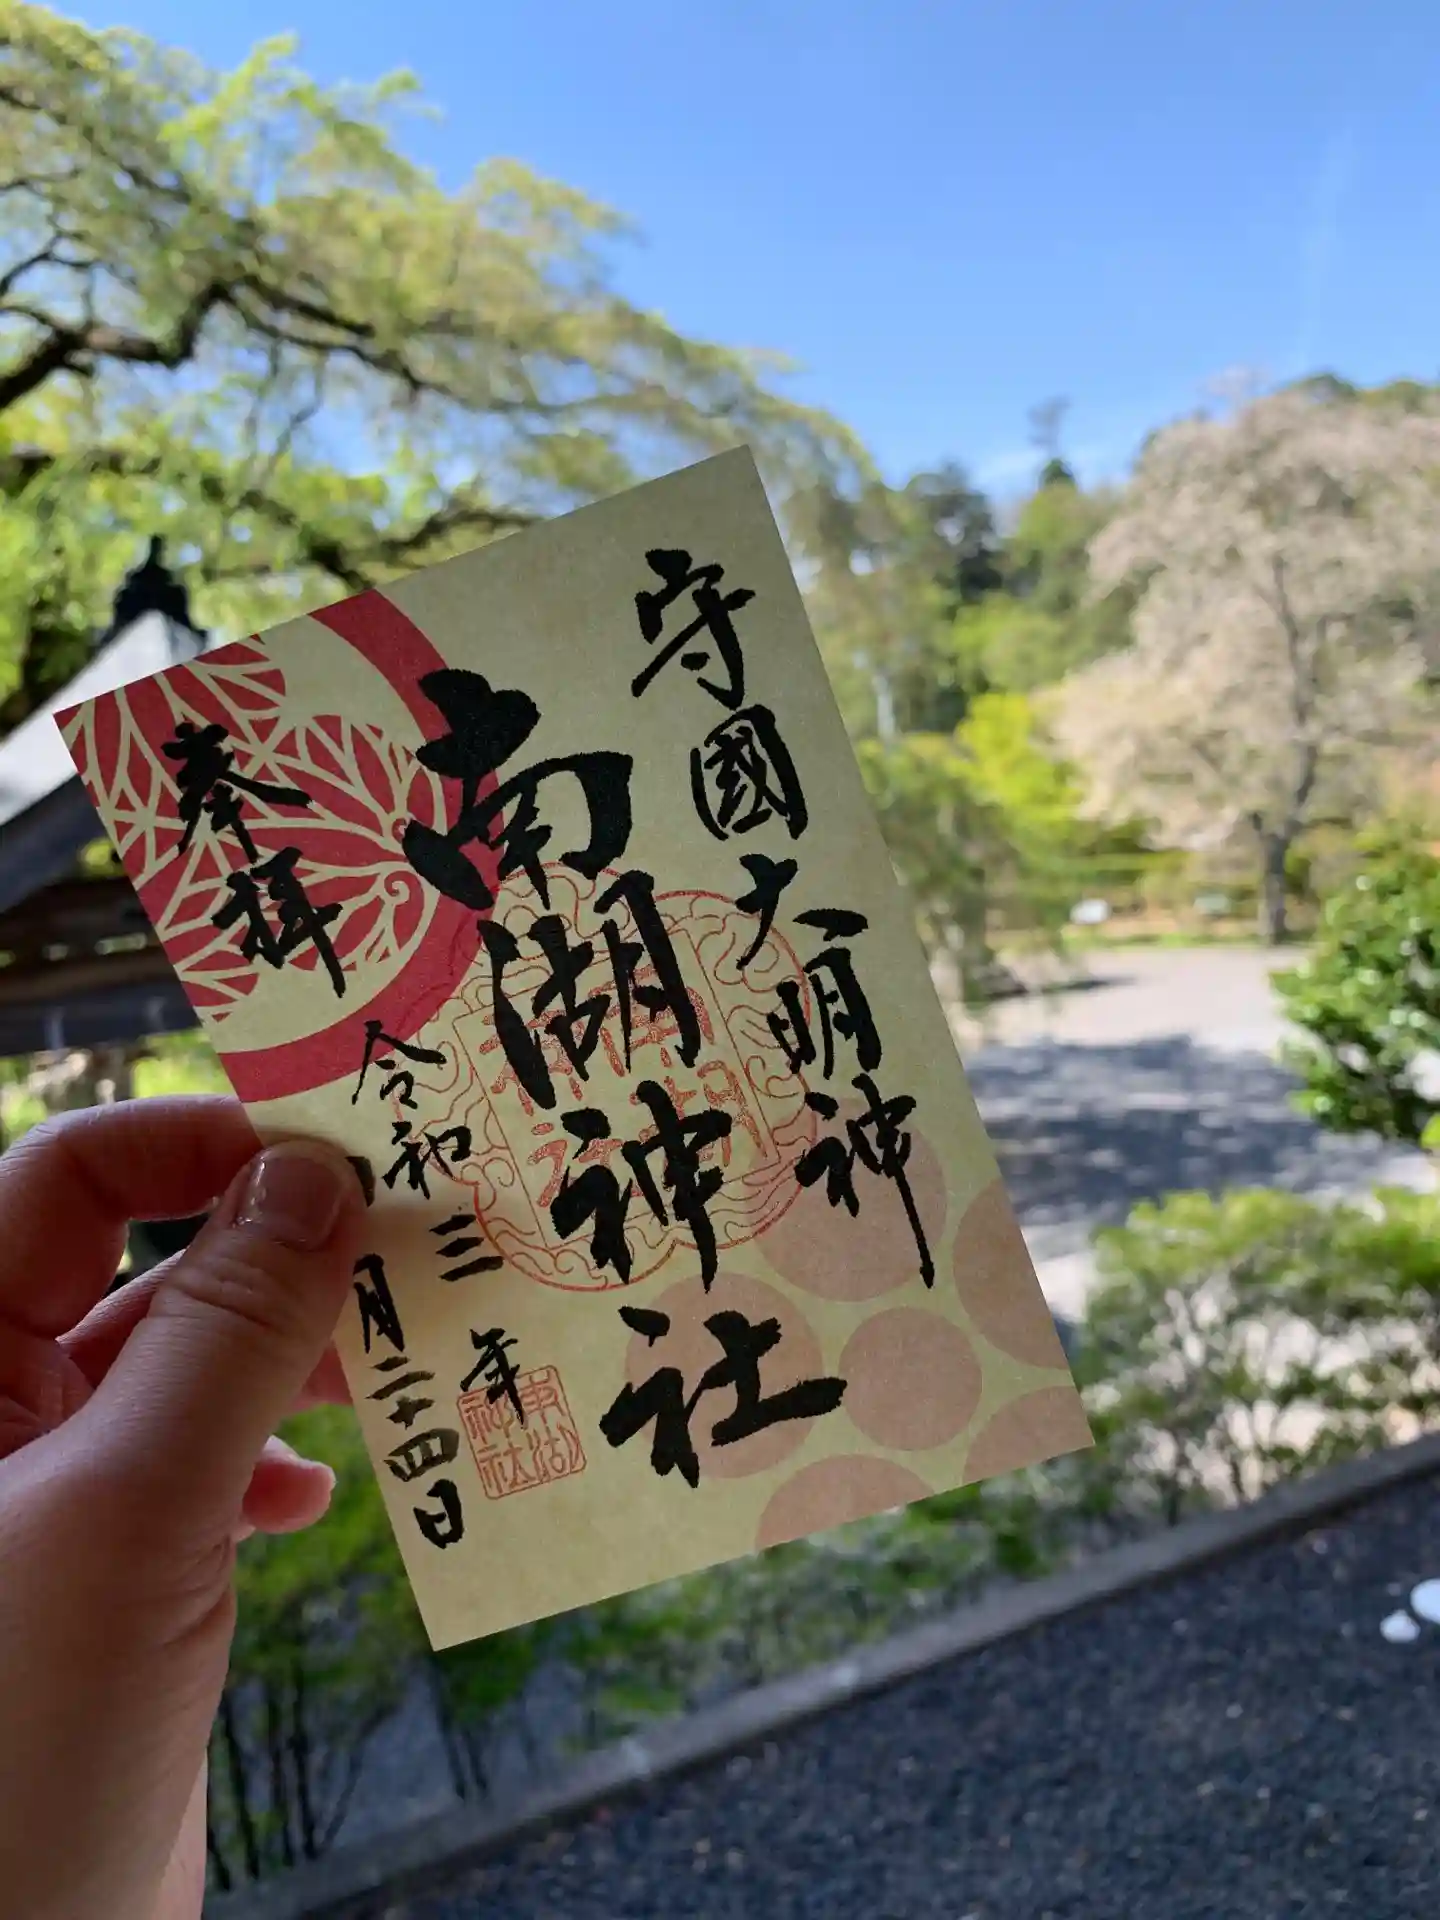 守國大明神
南湖神社
奉拝
令和三年
月二十四日
南湖
神社
南湖
神社